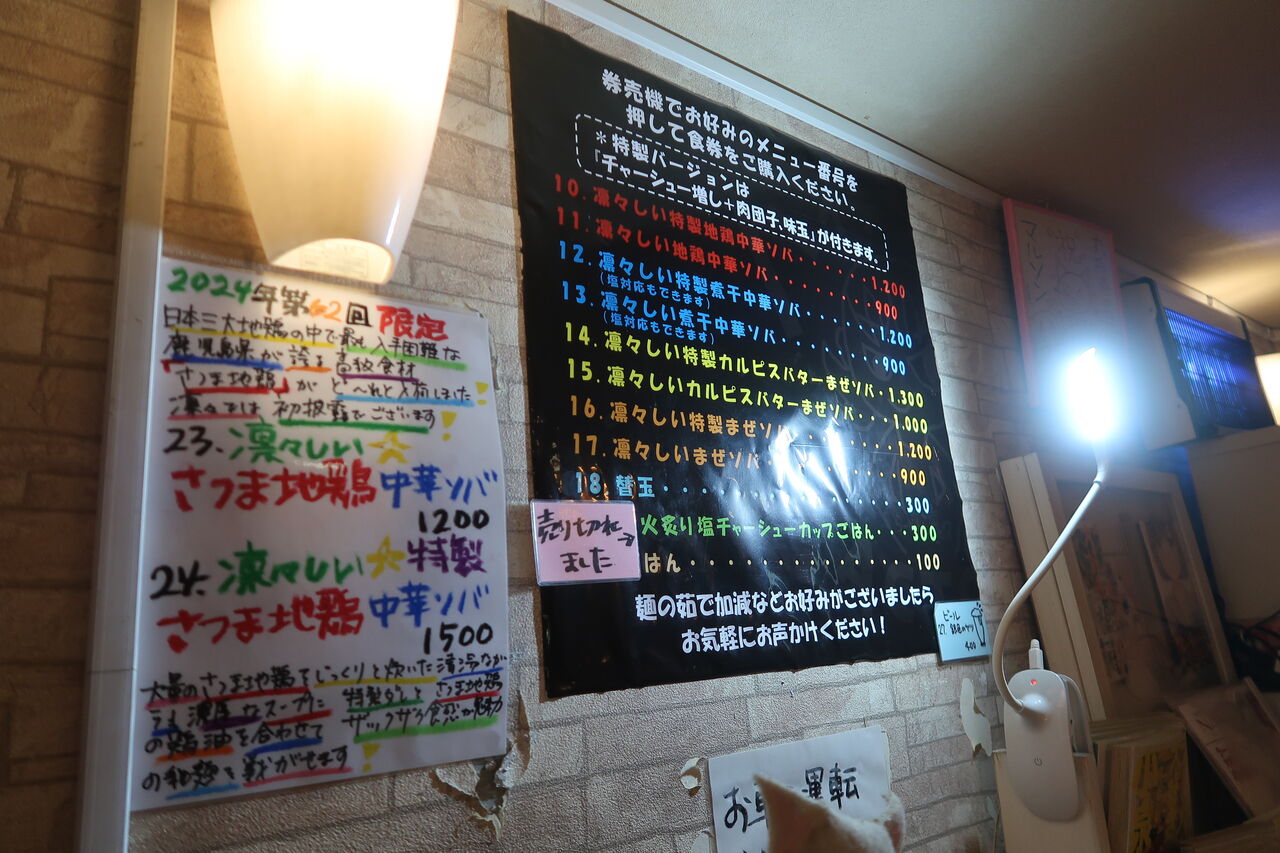 2024年第62回 限定
日本三大地鶏の中で最も入手困難な
鹿児島県が誇る高級食材
「さつま地鶏」がど〜れと入荷しました!
凛々では初披露でございます!
23. 凛々しい☆
さつま地鶏中華ソバ
1200
24. 凛々しい☆特製
さつま地鶏中華ソバ
1500
大量のさつま地鶏をじっくりと炊いた清湯なが
ても濃厚なスープに 特製ダレとさつま地鶏
の鶏油を合わせて ザックザク食感が魅力
の和麺を戴がせます!
券売機でお好みのメニュー番号を
押して食券をご購入ください。
*特製バージョンは
「チャーシュー増し+肉団子、味玉」が付きます。
10. 凛々しい特製地鶏中華ソバ・・・・・・・1.200
11. 凛々しい地鶏中華ソバ・・・・・・・900
12. 凛々しい特製煮干中華ソバ・・・・・・1.200
(塩対応もできます)
13. 凛々しい煮干中華ソバ・・・・・・・900
(塩対応もできます)
14. 凛々しい特製カルピスバターまぜソバ・1.300
15. 凛々しいカルピスバターまぜソバ・・1.000
16. 凛々しい特製まぜソバ・・・・・・・1.200
17. 凛々しいまぜソバ・・・・・・・・900
18 替玉・・・・・・・・・・・・・300
売り切れ→
ました
火炙り塩チャーシューカップごはん・・・300
はん・・・・・・・・・・・・・・100
麺の茹で加減などお好みがございましたら
お気軽にお声かけください!
ビール
27.
400
運転